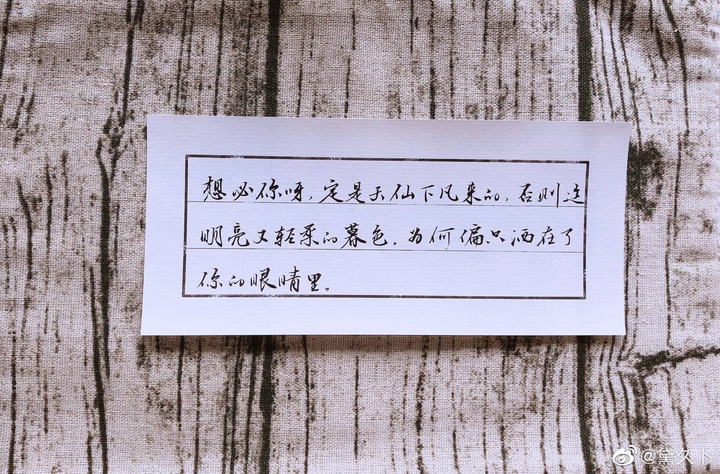 想必你呀，定是天仙下凡来的，否则这
明亮又轻柔的暮色，为何偏只洒在了
你的眼睛里。
@黛久卜